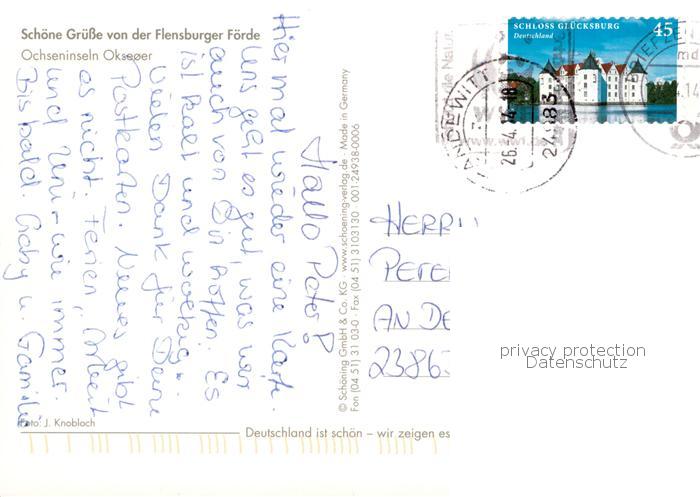 Schöne Grüße von der Flensburger Förde
Ochseninseln Okseøer
Hallo Peter!
Hier mal wieder eine Karte.
Uns geht es gut, was wir
auch von Dir hoffen. Es
ist kalt und wolkig.
Vielen Dank für Deine
Postkarten. Neues gibt
es nicht. Ferien, Arbeit
und Uni - wie immer.
Bis bald. Gaby u. Familie
Foto: J. Knobloch
© Schöning GmbH & Co. KG · www.schoening-verlag.de · Made in Germany
Fon (04 51) 31 03-0 · Fax (04 51) 3103130 · 001-24938-0006
Deutschland ist schön – wir zeigen es
SCHLOSS GLÜCKSBURG 45
Deutschland
HANDEWITT
26.4.14-18
24983
HERRN
PETE
AN DE
2386
privacy protection
Datenschutz